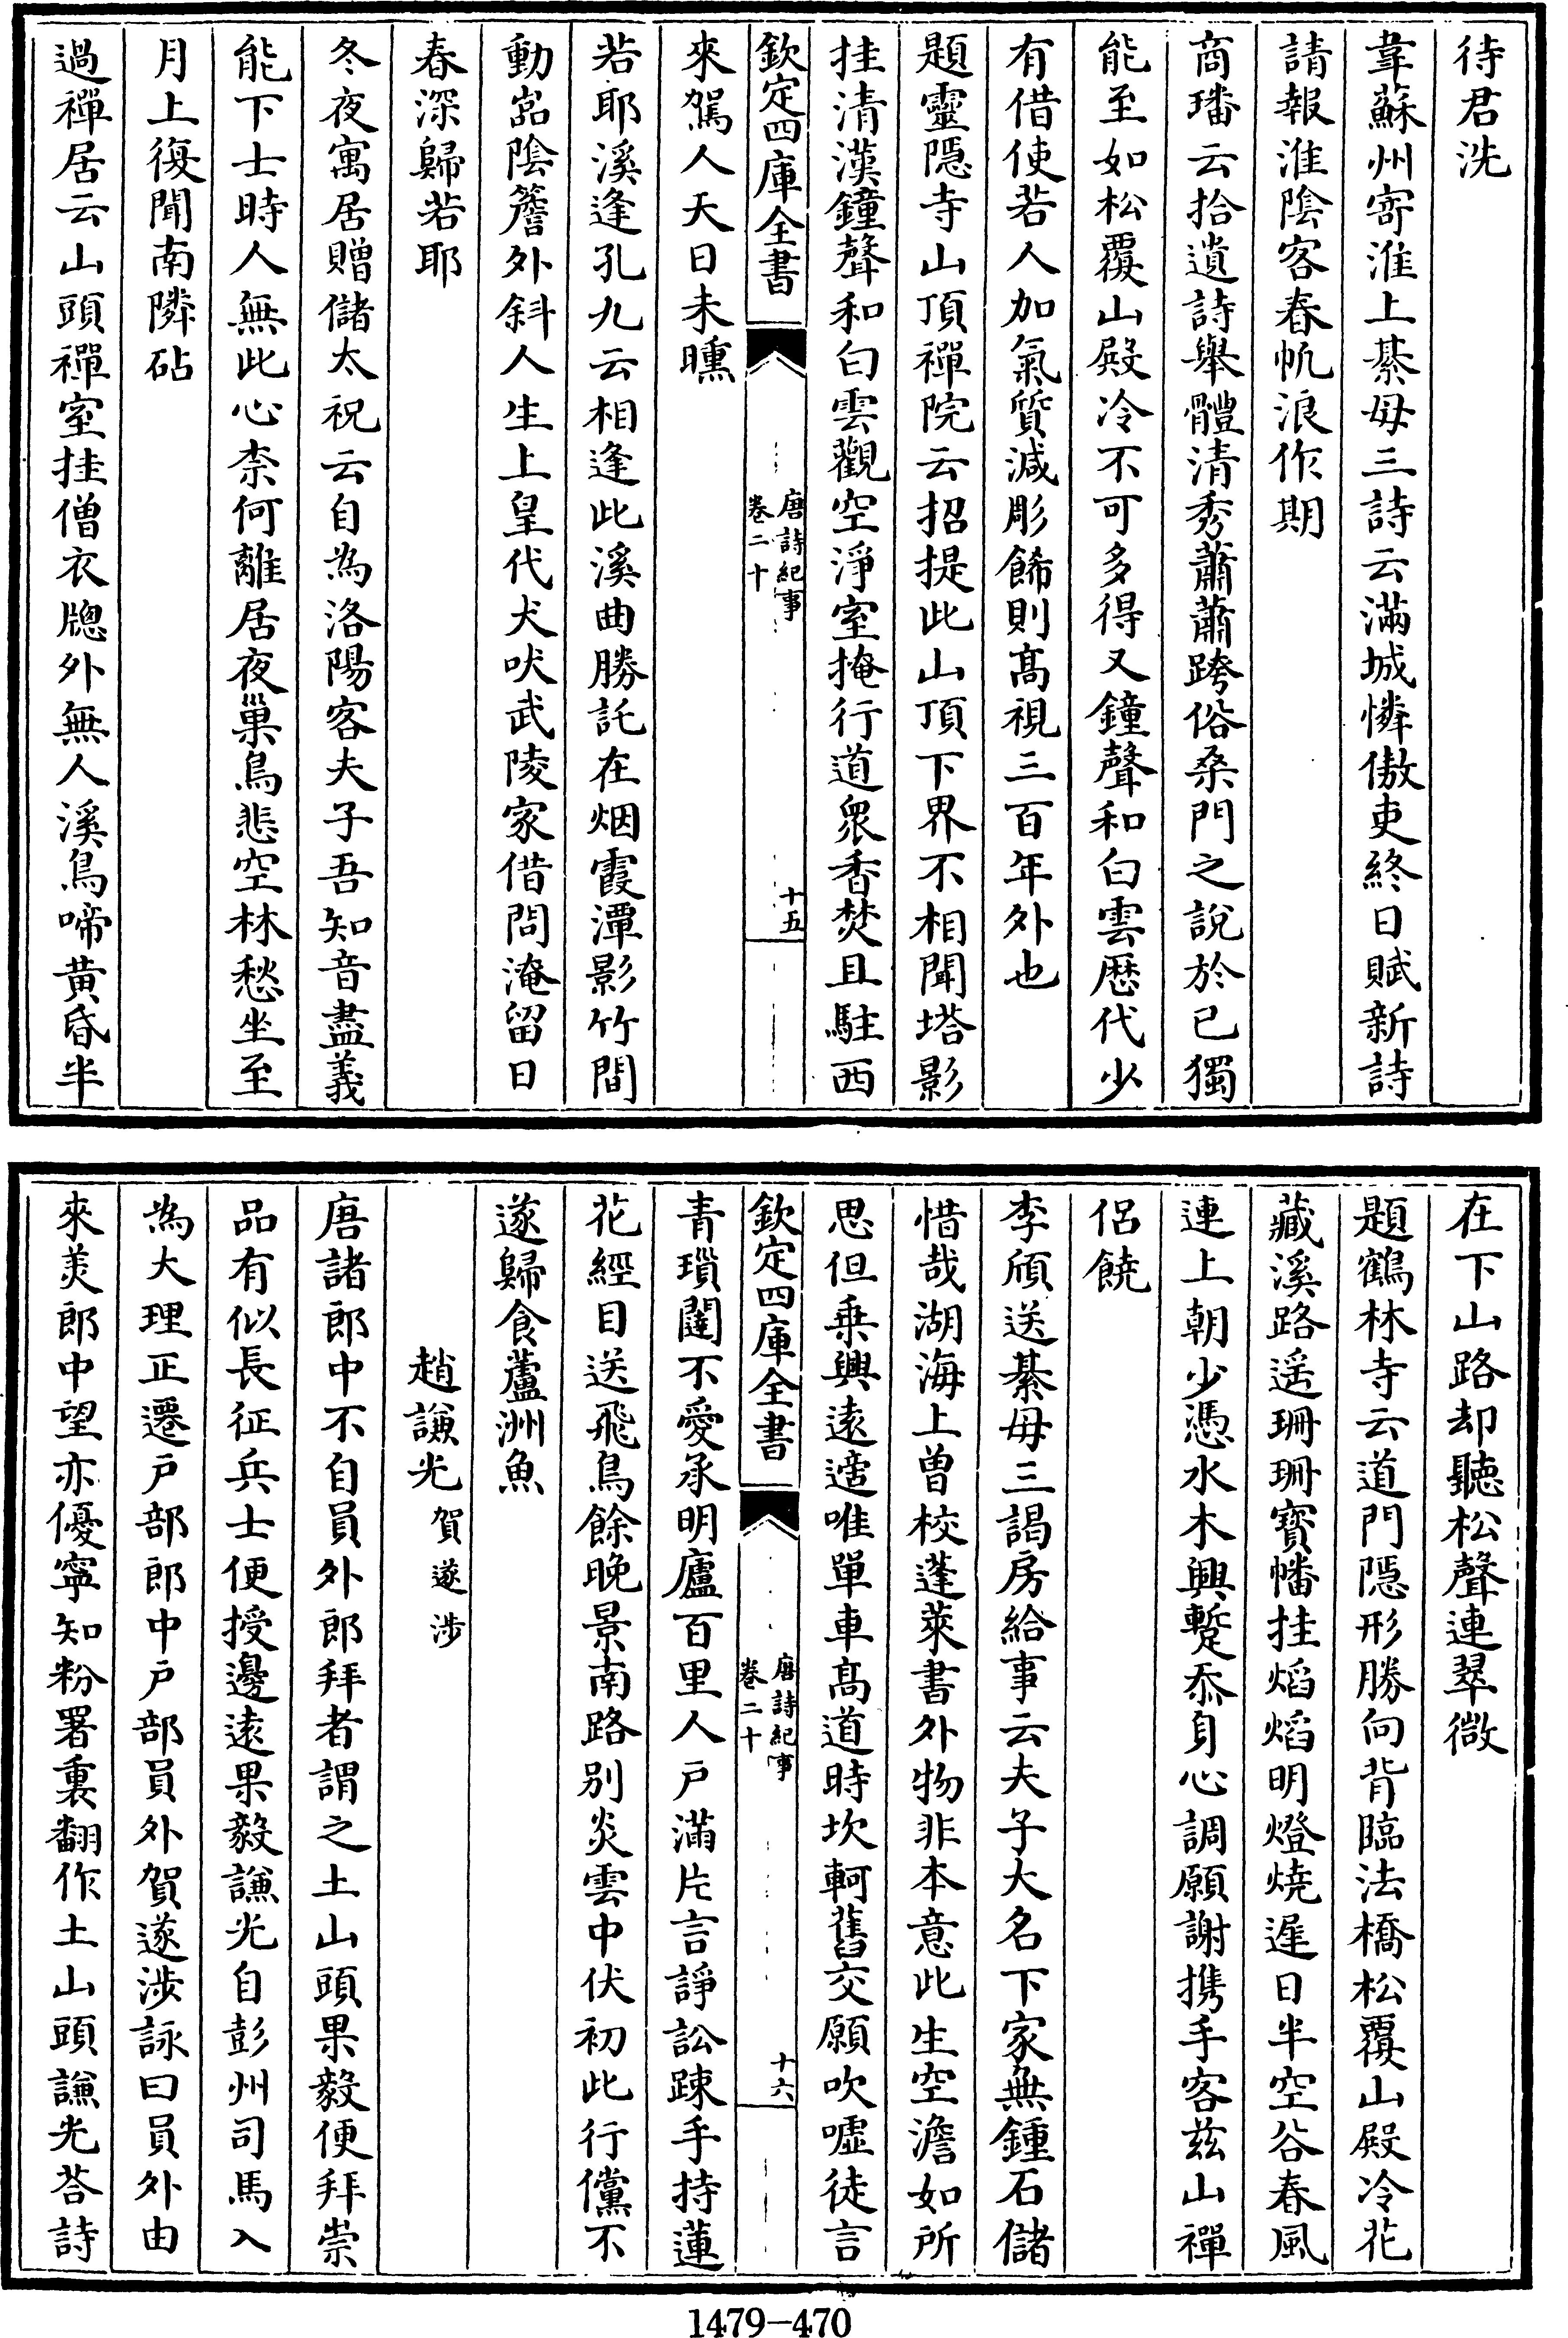 待君洗
韋蘇州寄淮上綦毋三詩云滿城憐傲吏終日賦新詩
請報淮陰客春帆浪作期
商璠云拾遺詩舉體清秀蕭蕭跨俗桑門之說於已獨
能至如松覆山殿冷不可多得又鐘聲和白雲歴代少
有借使若人加氣質減彫飾則髙視三百年外也
題靈隱寺山頂禪院云招提此山頂下界不相聞塔影
挂清漢鐘聲和白雲觀空淨室掩行道衆香焚且駐西
欽定四庫全書
唐詩紀事
卷二十
十五
來駕人天日未曛
若耶溪逢孔九云相逢此溪曲勝託在烟霞潭影竹間
動嵓陰簷外斜人生上皇代犬吠武陵家借問淹留日
春深歸若耶
冬夜寓居贈儲太祝云自為洛陽客夫子吾知音盡義
能下士時人無此心柰何離居夜巢鳥悲空林愁坐至
月上復聞南隣砧
過禪居云山頭禪室挂僧衣牕外無人溪鳥啼黄昏半
在下山路却聽松聲連翠微
題鶴林寺云道門隱形勝向背臨法橋松覆山殿冷花
藏溪路遥珊珊寶幡挂焰焰明燈燒遲日半空谷春風
連上朝少憑水木興蹔忝身心調願謝携手客兹山禪
侣饒
李頎送綦毋三謁房給事云夫子大名下家無鍾石儲
惜哉湖海上曾校蓬萊書外物非本意此生空澹如所
思但乗興遠適唯單車髙道時坎軻舊交願吹噓徒言
欽定四庫全書
唐詩紀事
卷二十
十六
青瑣闥不愛承明廬百里人戶滿片言諍訟踈手持蓮
花經目送飛鳥餘晚景南路别炎雲中伏初此行儻不
遂歸食蘆洲魚
趙謙光賀遂涉
唐諸郎中不自員外郎拜者謂之土山頭果毅便拜崇
品有似長征兵士便授邊遠果毅謙光自彭州司馬入
為大理正遷戶部郎中戶部員外賀遂涉詠曰員外由
來美郎中望亦優寧知粉署裏翻作土山頭謙光荅詩
1479-470